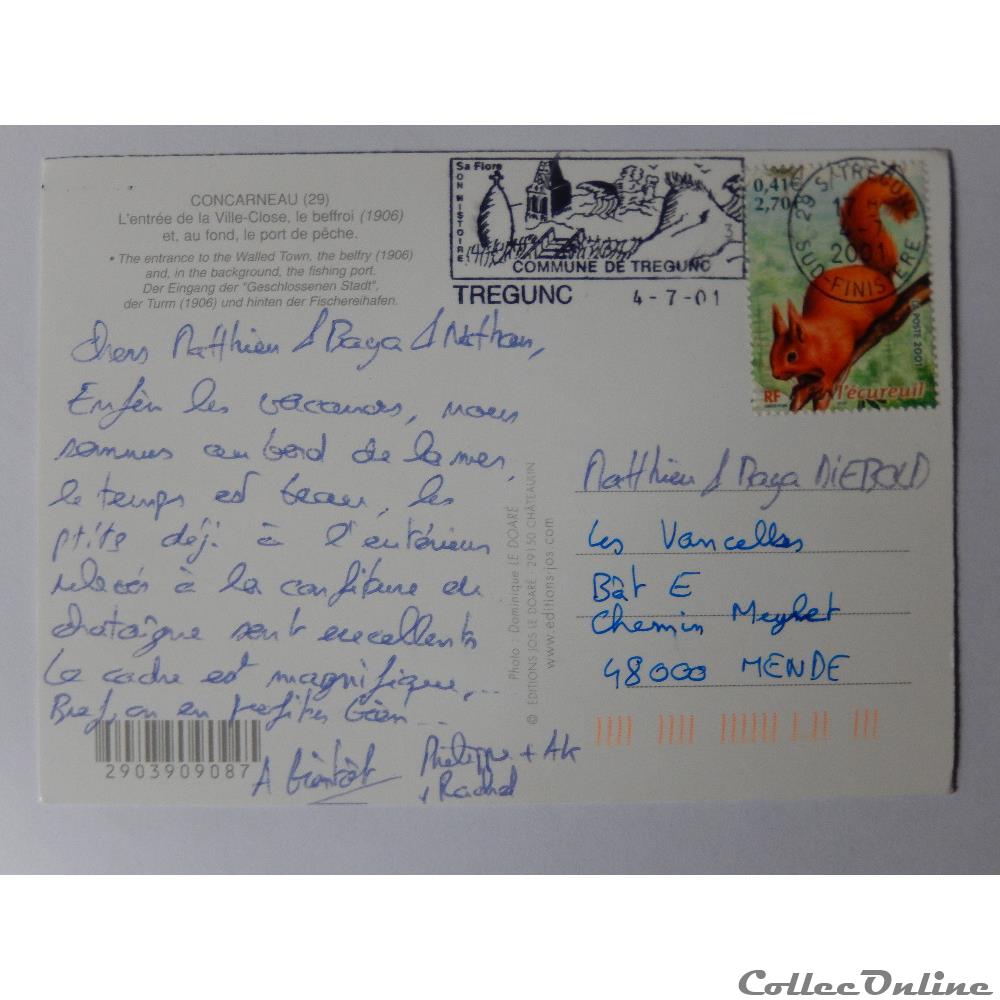 CONCARNEAU (29)
L'entrée de la Ville-Close, le beffroi (1906)
et, au fond, le port de pêche.
• The entrance to the Walled Town, the belfry (1906)
and, in the background, the fishing port.
Der Eingang der "Geschlossenen Stadt",
der Turm (1906) und hinten der Fischereihafen.
Sa Flore
SON HISTOIRE
COMMUNE DE TREGUNC
TREGUNC 4-7-01
0,41€
2,70F
29 S/TREGUNC
17
2001
SUD FINISTERE
LA POSTE 2001
RF l'écureuil
Chers Matthieu & Maya & Nathan,
Enfin les vacances, nous
sommes au bord de la mer,
le temps est beau, les
ptits déj. à l'extérieur
à la confiture de
chataîgne sont excellents
Le cadre est magnifique...
Bref, on en profites bien...
A bientôt
Philippe + 
+ Rachel
Photo : Dominique LE DOARÉ
© EDITIONS JOS LE DOARÉ - 29150 CHÂTEAULIN
www.editions-jos.com
Matthieu & Maya DIEBOLD
Les Vancelles
Bât E
Chemin
48000 MENDE
2903909087
CollecOnline